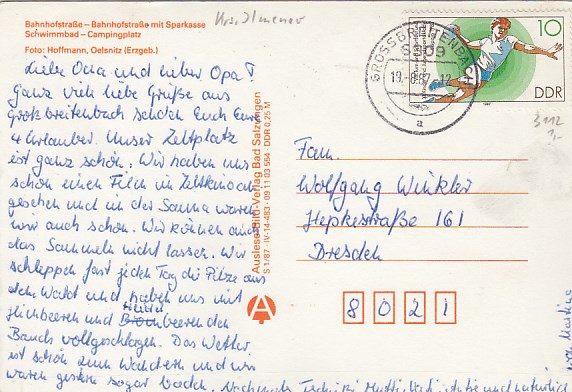 Bahnhofstraße – Bahnhofstraße mit Sparkasse
Schwimmbad – Campingplatz
Foto: Hoffmann, Oelsnitz (Erzgeb.)
Liebe Oma und lieber Opa!
Ganz viele liebe Grüße aus
Großbreitenbach schicken Euch Eure
4 Urlauber. Unser Zeltplatz
ist ganz schön. Wir haben uns
schon einen Film im Zeltkino an-
gesehen und in der Sauna waren
wir auch schon. Wir können auch
das Sammeln nicht lassen. Wir
schleppen fast jeden Tag die Pilze aus
dem Wald und haben uns mit
Himbeeren und Heidelbeeren den
Bauch vollgeschlagen. Das Wetter
ist schön zum Wandern und wir
waren gestern sogar baden.
Auslese-Bild-Verlag Bad Salzungen
S 1/87 · IV-14-483 · 09 11 03 554 · DDR 0,25 M
A
GROSSBREITENBACH
6309
19.-8.87-12
a
10
DDR
3112
Fam.
Wolfgang Winkler
Hepkestraße 161
Dresden
8021